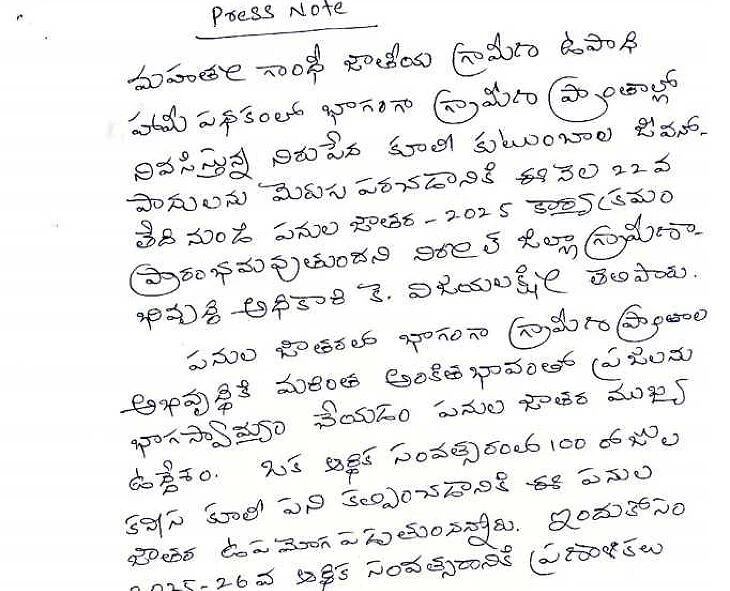 Press Note
మహాత్మా గాంధీ జాతీయ గ్రామీణ ఉపాధి
హామీ పథకంలో భాగంగా గ్రామీణ ప్రాంతాల్లో
నివసిస్తున్న నిరుపేద కూలీ కుటుంబాల జీవనో-
పాదులను మెరుగు పరచడానికి ఈ నెల 22 వ
తేది నుండి పనుల జాతర - 2025 కార్యక్రమం
ప్రారంభమవుతుందని నిర్మల్ జిల్లా గ్రామీణా-
భివృద్ధి అధికారి కె. విజయలక్ష్మీ తెలిపారు.
పనుల జాతరలో భాగంగా గ్రామీణ ప్రాంతాల
అభివృద్ధికి మరింత అంకితభావంతో ప్రజలను
భాగస్వామ్యం చేయడం పనుల జాతర ముఖ్య
ఉద్దేశం. ఒక ఆర్థిక సంవత్సరంలో 100 రోజుల
కనీస కూలీ పని కల్పించడానికి ఈ పనుల
జాతర ఉపయోగపడుతుందన్నారు. ఇందుకోసం
2025-26 వ ఆర్థిక సంవత్సరానికి ప్రణాళికలు